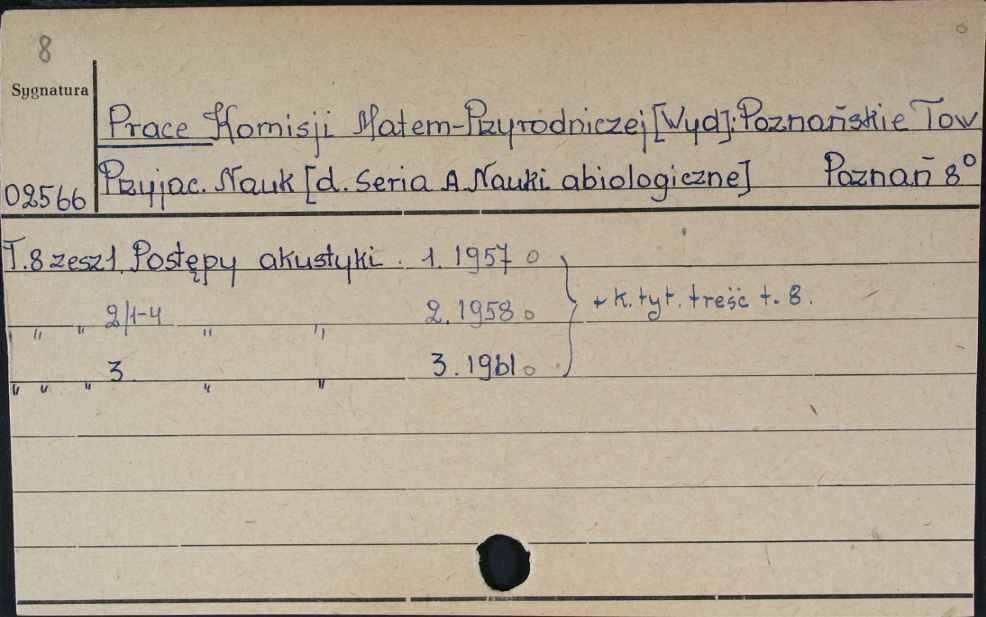 8
Sygnatura
Prace Komisji Matem-Przyrodniczej [Wyd]: Poznańskie Tow
02566 Przyjac. Nauk [d. Seria A. Nauki abiologiczne] Poznań 8°
T. 8 zesz 1. Postępy akustyki. 1. 1957 o
" " 2/1-4 " " 2. 1958 o } + k. tyt. treść t. 8.
" " " 3 " " 3. 1961 o